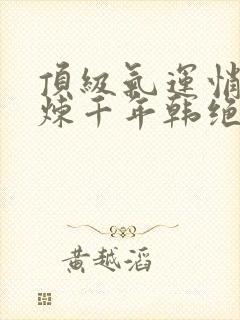 頂級氣運悄
炼千年韩绝
黄越滔